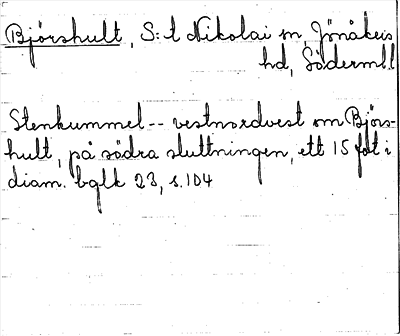 Björshult, S:t Nikolai sn, Jönåkers
hd, Söderml.
Stenkummel -- vestnordvest om Björs-
hult, på södra sluttningen, ett 15 fot i
diam. bglk 23, s.104